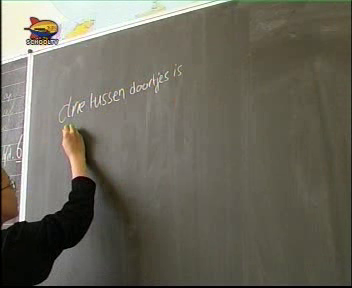 SCHOOLTV
drie tussen doortjes is
6